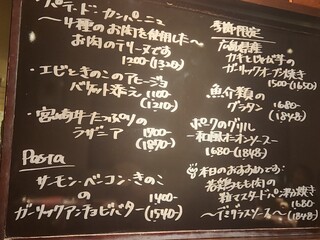 ・パテ・ド・カンパーニュ
〜4種のお肉を使用した〜
お肉のテリーヌです
1200-(1320)
・エビときのこのアヒージョ
バゲット添え 1100-
(1210-)
・宮崎牛たっぷりの
ラザニア 1700-
(1870-)
Pasta
サーモン・ベーコン・きのこ
の 1400-
ガーリックアンチョビバター(1540-)
季節限定
広島県産
カキとじゃが芋の
ガーリックオーブン焼き
1500-(1650)
魚介類の
グラタン 1680-
(1848-)
ポークのグリル
〜和風オニオンソース〜
1680-(1848-)
本日のおすすめです!
若鶏もも肉の
粒マスタードパン粉焼き
1680-
〜デミグラスソース〜(1848-)